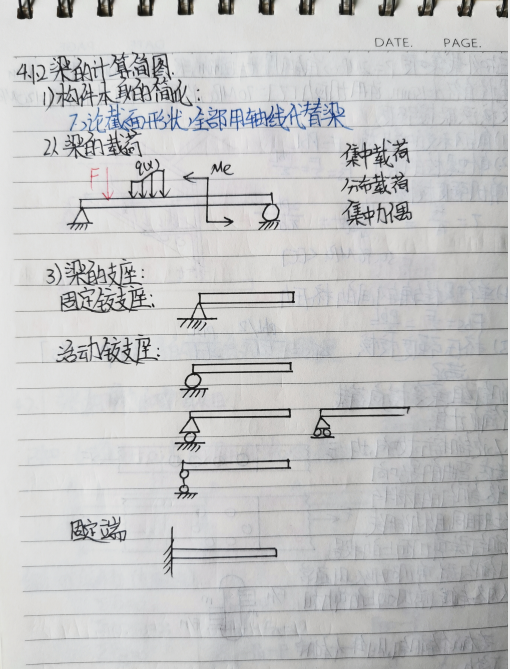 DATE. PAGE.
4.1.2 梁的计算简图
1) 构件本身的简化:
不论截面形状,全部用轴线代替梁
2) 梁的载荷
F q(x) Me
集中载荷
分布载荷
集中力偶
3) 梁的支座:
固定铰支座:
活动铰支座:
固定端